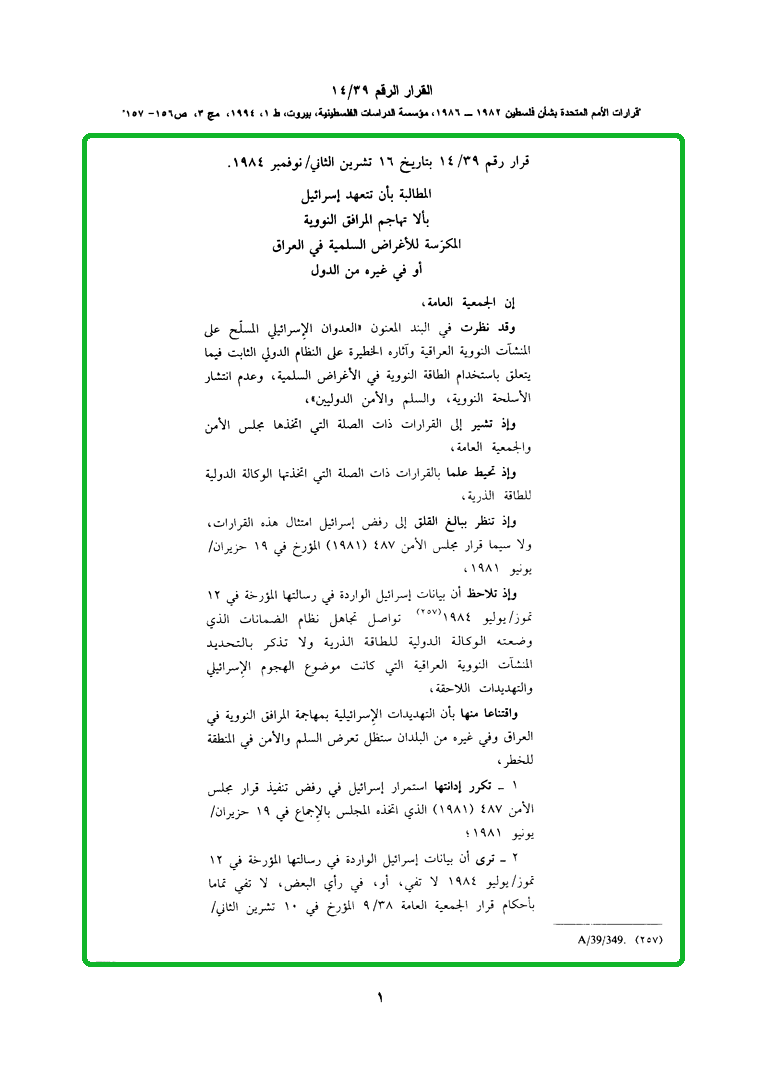 القرار الرقم ١٤/٣٩
"قرارات الأمم المتحدة بشأن فلسطين ١٩٨٢ ــ ١٩٨٦، مؤسسة الدراسات الفلسطينية، بيروت، ط ١، ١٩٩٤، مج ٣، ص١٥٦- ١٥٧"
قرار رقم ١٤/٣٩ بتاريخ ١٦ تشرين الثاني/نوفمبر ١٩٨٤.
المطالبة بأن تتعهد إسرائيل
بألا تهاجم المرافق النووية
المكرّسة للأغراض السلمية في العراق
أو في غيره من الدول
إن الجمعية العامة،
وقد نظرت في البند المعنون «العدوان الإسرائيلي المسلّح على
المنشآت النووية العراقية وآثاره الخطيرة على النظام الدولي الثابت فيما
يتعلق باستخدام الطاقة النووية في الأغراض السلمية، وعدم انتشار
الأسلحة النووية، والسلم والأمن الدوليين»،
وإذ تشير إلى القرارات ذات الصلة التي اتخذها مجلس الأمن
والجمعية العامة،
وإذ تحيط علما بالقرارات ذات الصلة التي اتخذتها الوكالة الدولية
للطاقة الذرية،
وإذ تنظر ببالغ القلق إلى رفض إسرائيل امتثال هذه القرارات،
ولا سيما قرار مجلس الأمن ٤٨٧ (١٩٨١) المؤرخ في ١٩ حزيران/
يونيو ١٩٨١،
وإذ تلاحظ أن بيانات إسرائيل الواردة في رسالتها المؤرخة في ١٢
تموز/يوليو ١٩٨٤(٢٥٧) تواصل تجاهل نظام الضمانات الذي
وضعته الوكالة الدولية للطاقة الذرية ولا تذكر بالتحديد
المنشآت النووية العراقية التي كانت موضوع الهجوم الإسرائيلي
والتهديدات اللاحقة،
واقتناعا منها بأن التهديدات الإسرائيلية بمهاجمة المرافق النووية في
العراق وفي غيره من البلدان ستظل تعرض السلم والأمن في المنطقة
للخطر،
١ ـ تكرر إدانتها استمرار إسرائيل في رفض تنفيذ قرار مجلس
الأمن ٤٨٧ (١٩٨١) الذي اتخذه المجلس بالإجماع في ١٩ حزيران/
يونيو ١٩٨١؛
٢ ـ ترى أن بيانات إسرائيل الواردة في رسالتها المؤرخة في ١٢
تموز/يوليو ١٩٨٤ لا تفي، أو، في رأي البعض، لا تفي تماما
بأحكام قرار الجمعية العامة ٩/٣٨ المؤرخ في ١٠ تشرين الثاني/
(٢٥٧) A/39/349.
١